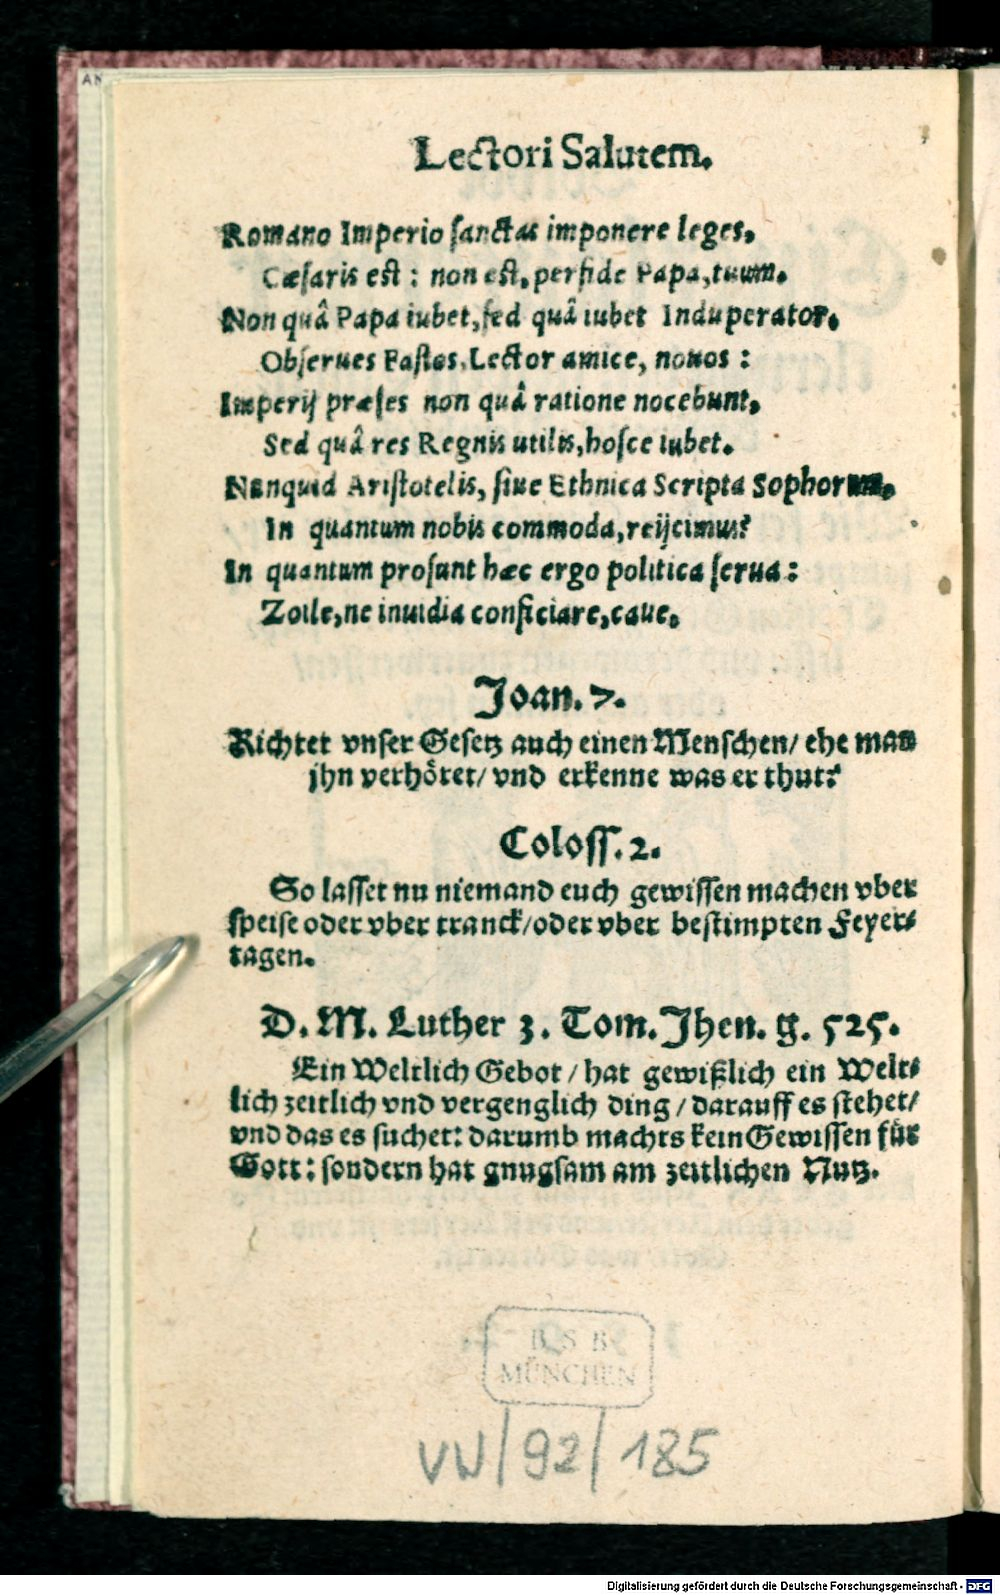 Lectori Salutem.
Romano Imperio ſanctas imponere leges,
Cæſaris est: non est, perfide Papa, tuum.
Non quâ Papa iubet, ſed quâ iubet Induperator,
Obſerues Faſtos, Lector amice, nouos:
Imperij præſes non quâ ratione nocebunt,
Sed quâ res Regnis utilis, hoſce iubet.
Nunquid Ariſtotelis, ſiue Ethnica Scripta Sophorum,
In quantum nobis commoda, reijcimus?
In quantum proſunt hæc ergo politica ſerua:
Zoile, ne inuidia conficiare, caue.
Joan. 7.
Richtet vnſer Geſetz auch einen Menſchen/ ehe man
jhn verhöret/ vnd erkenne was er thut?
Coloſſ. 2.
So laſſet nu niemand euch gewiſſen machen vber
ſpeiſe oder vber tranck/ oder vber beſtimpten Feyer⸗
tagen.
D. M. Luther 3. Tom. Jhen. g. 525.
Ein Weltlich Gebot/ hat gewißlich ein Welt⸗
lich zeitlich vnd vergenglich ding/ darauff es ſtehet/
vnd das es ſuchet: darumb machts kein Gewiſſen für
Gott: ſondern hat gnugſam am zeitlichen Nutz.
BSB
MÜNCHEN
VW/92/185
Digitalisierung gefördert durch die Deutsche Forschungsgemeinschaft - DFG